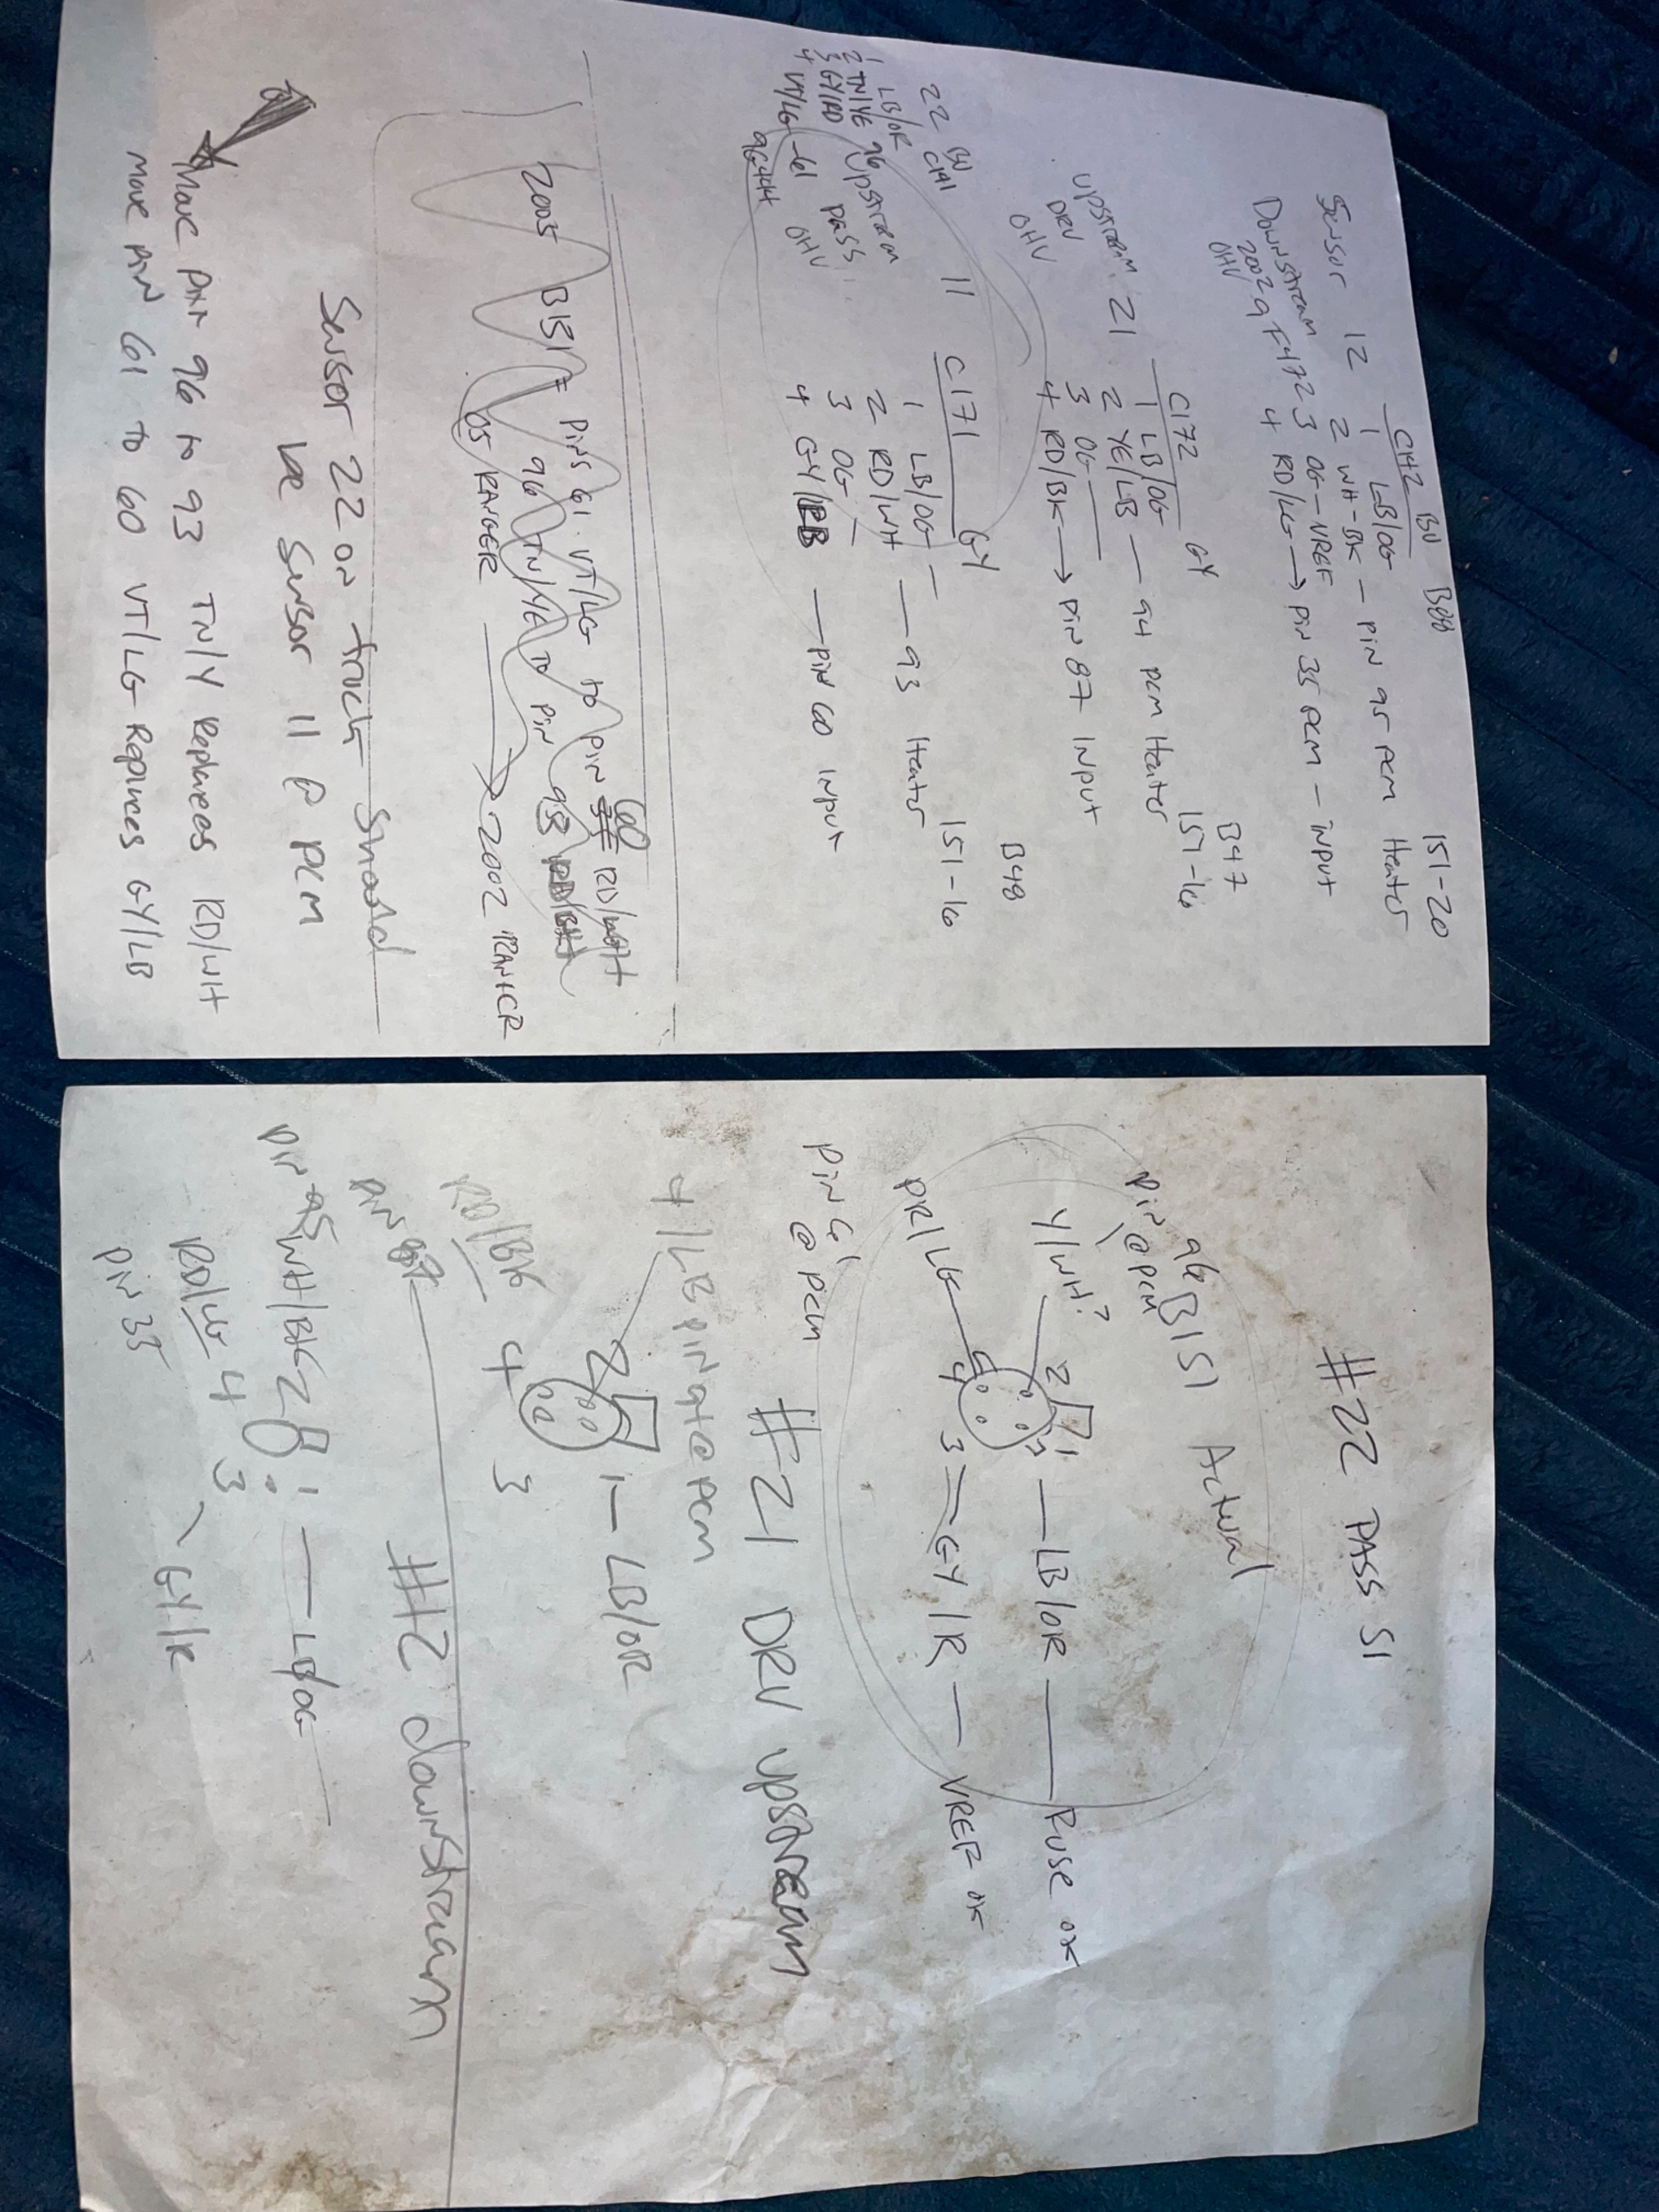 151-20
C142 BU B88
Sensor 12 1 LB/OG
2 WH-BK - PIN 95 PCM Heater
Downstream 3 OG-VREF
2002 9F472 4 RD/LG → PIN 35 PCM - INPUT
OHV
B47
C172 GY 151-16
1 LB/OG
Upstream 21 2 YE/LB — 94 PCM Heater
DRV 3 OG
OHV 4 RD/BK → PIN 87 INPUT
B48
BU C171 GY 151-16
22 C141 11 1 LB/OG
1 LB/OR 2 RD/WH — 93 Heater
2 TN/YE 96 Upstream 3 OG
3 GY/RD PASS
4 VT/LG -61 OHV 4 GY/LB — PIN 60 INPUT
9G444
2005 B1S1 = PINS 61 VT/LG to PIN 60 RD/WH
96 TN/YE TO PIN 93
05 RANGER → 2002 RANGER
Sensor 22 on truck should
be Sensor 11 @ PCM
Move PIN 96 to 93 TN/Y Replaces RD/WH
move PIN 61 to 60 VT/LG Replaces GY/LB
#22 PASS S1
96 B1S1 Actual
PIN @ PCM
Y/WH? 2 1 — LB/OR — FUSE OK
PR/LG 4 3 = GY/R — VREF OK
PIN 61
@ PCM
#21 DRV upstream
Y/LB PIN 94 @ PCM
2 1 — LB/OR
RD/BK 4 3
PIN 87
#12 downstream
PIN 95 WH/BK 2 1 — LB/OG
RD/LG 4 3 \ GY/R
PIN 35